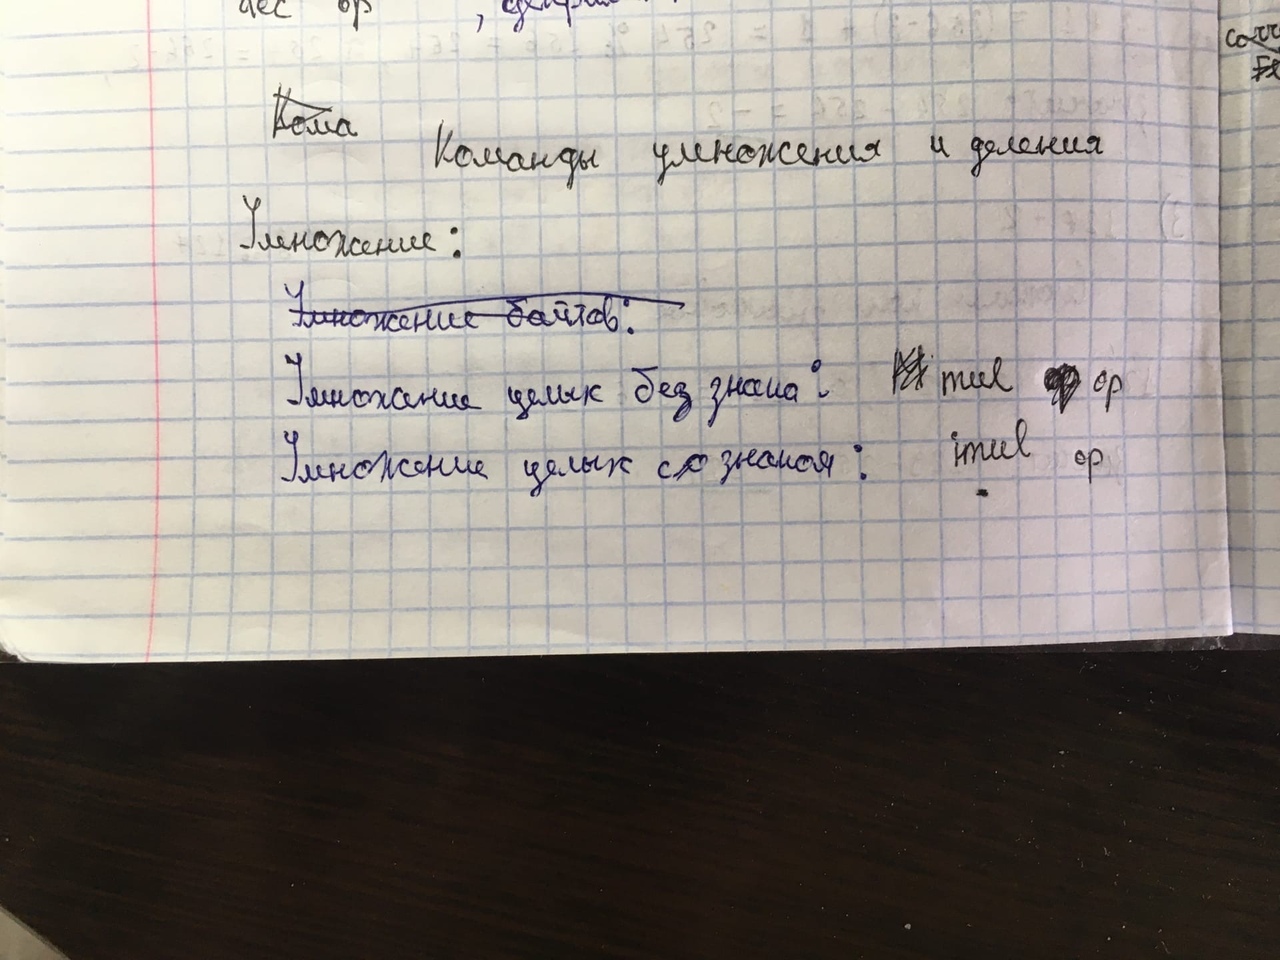 dec op
Кома
Команды умножения и деления
Умножение:
Умножение байтов:
Умножание целых без знака: mul op
Умножение целых со знаком: imul op